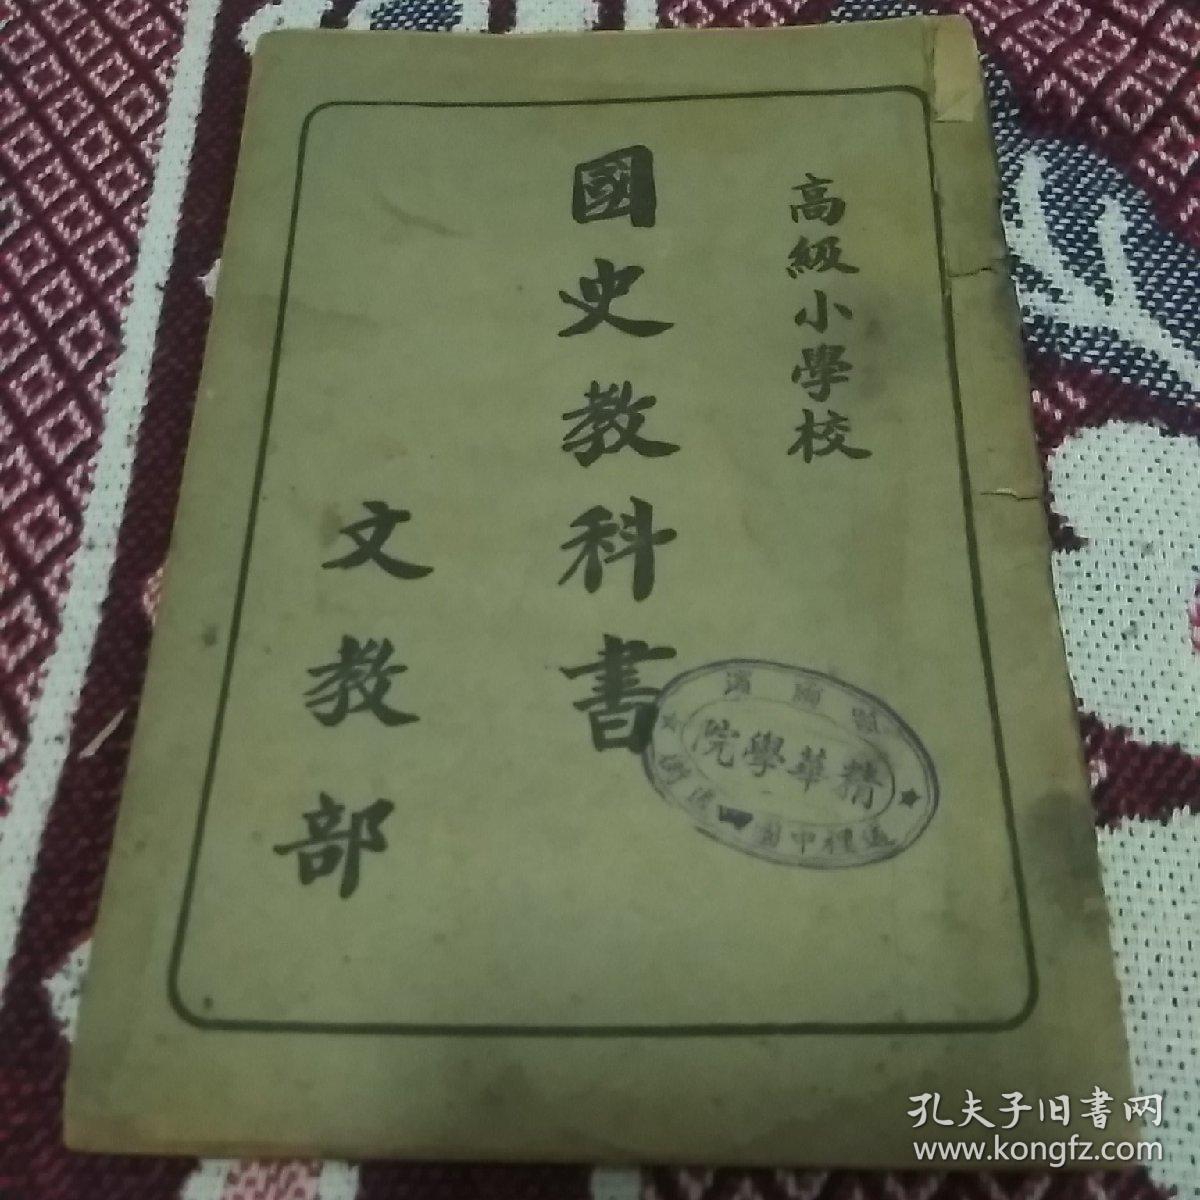 高級小學校
國史教科書
文教部
哈爾濱
精華學院
孔夫子旧書网
www.kongfz.com